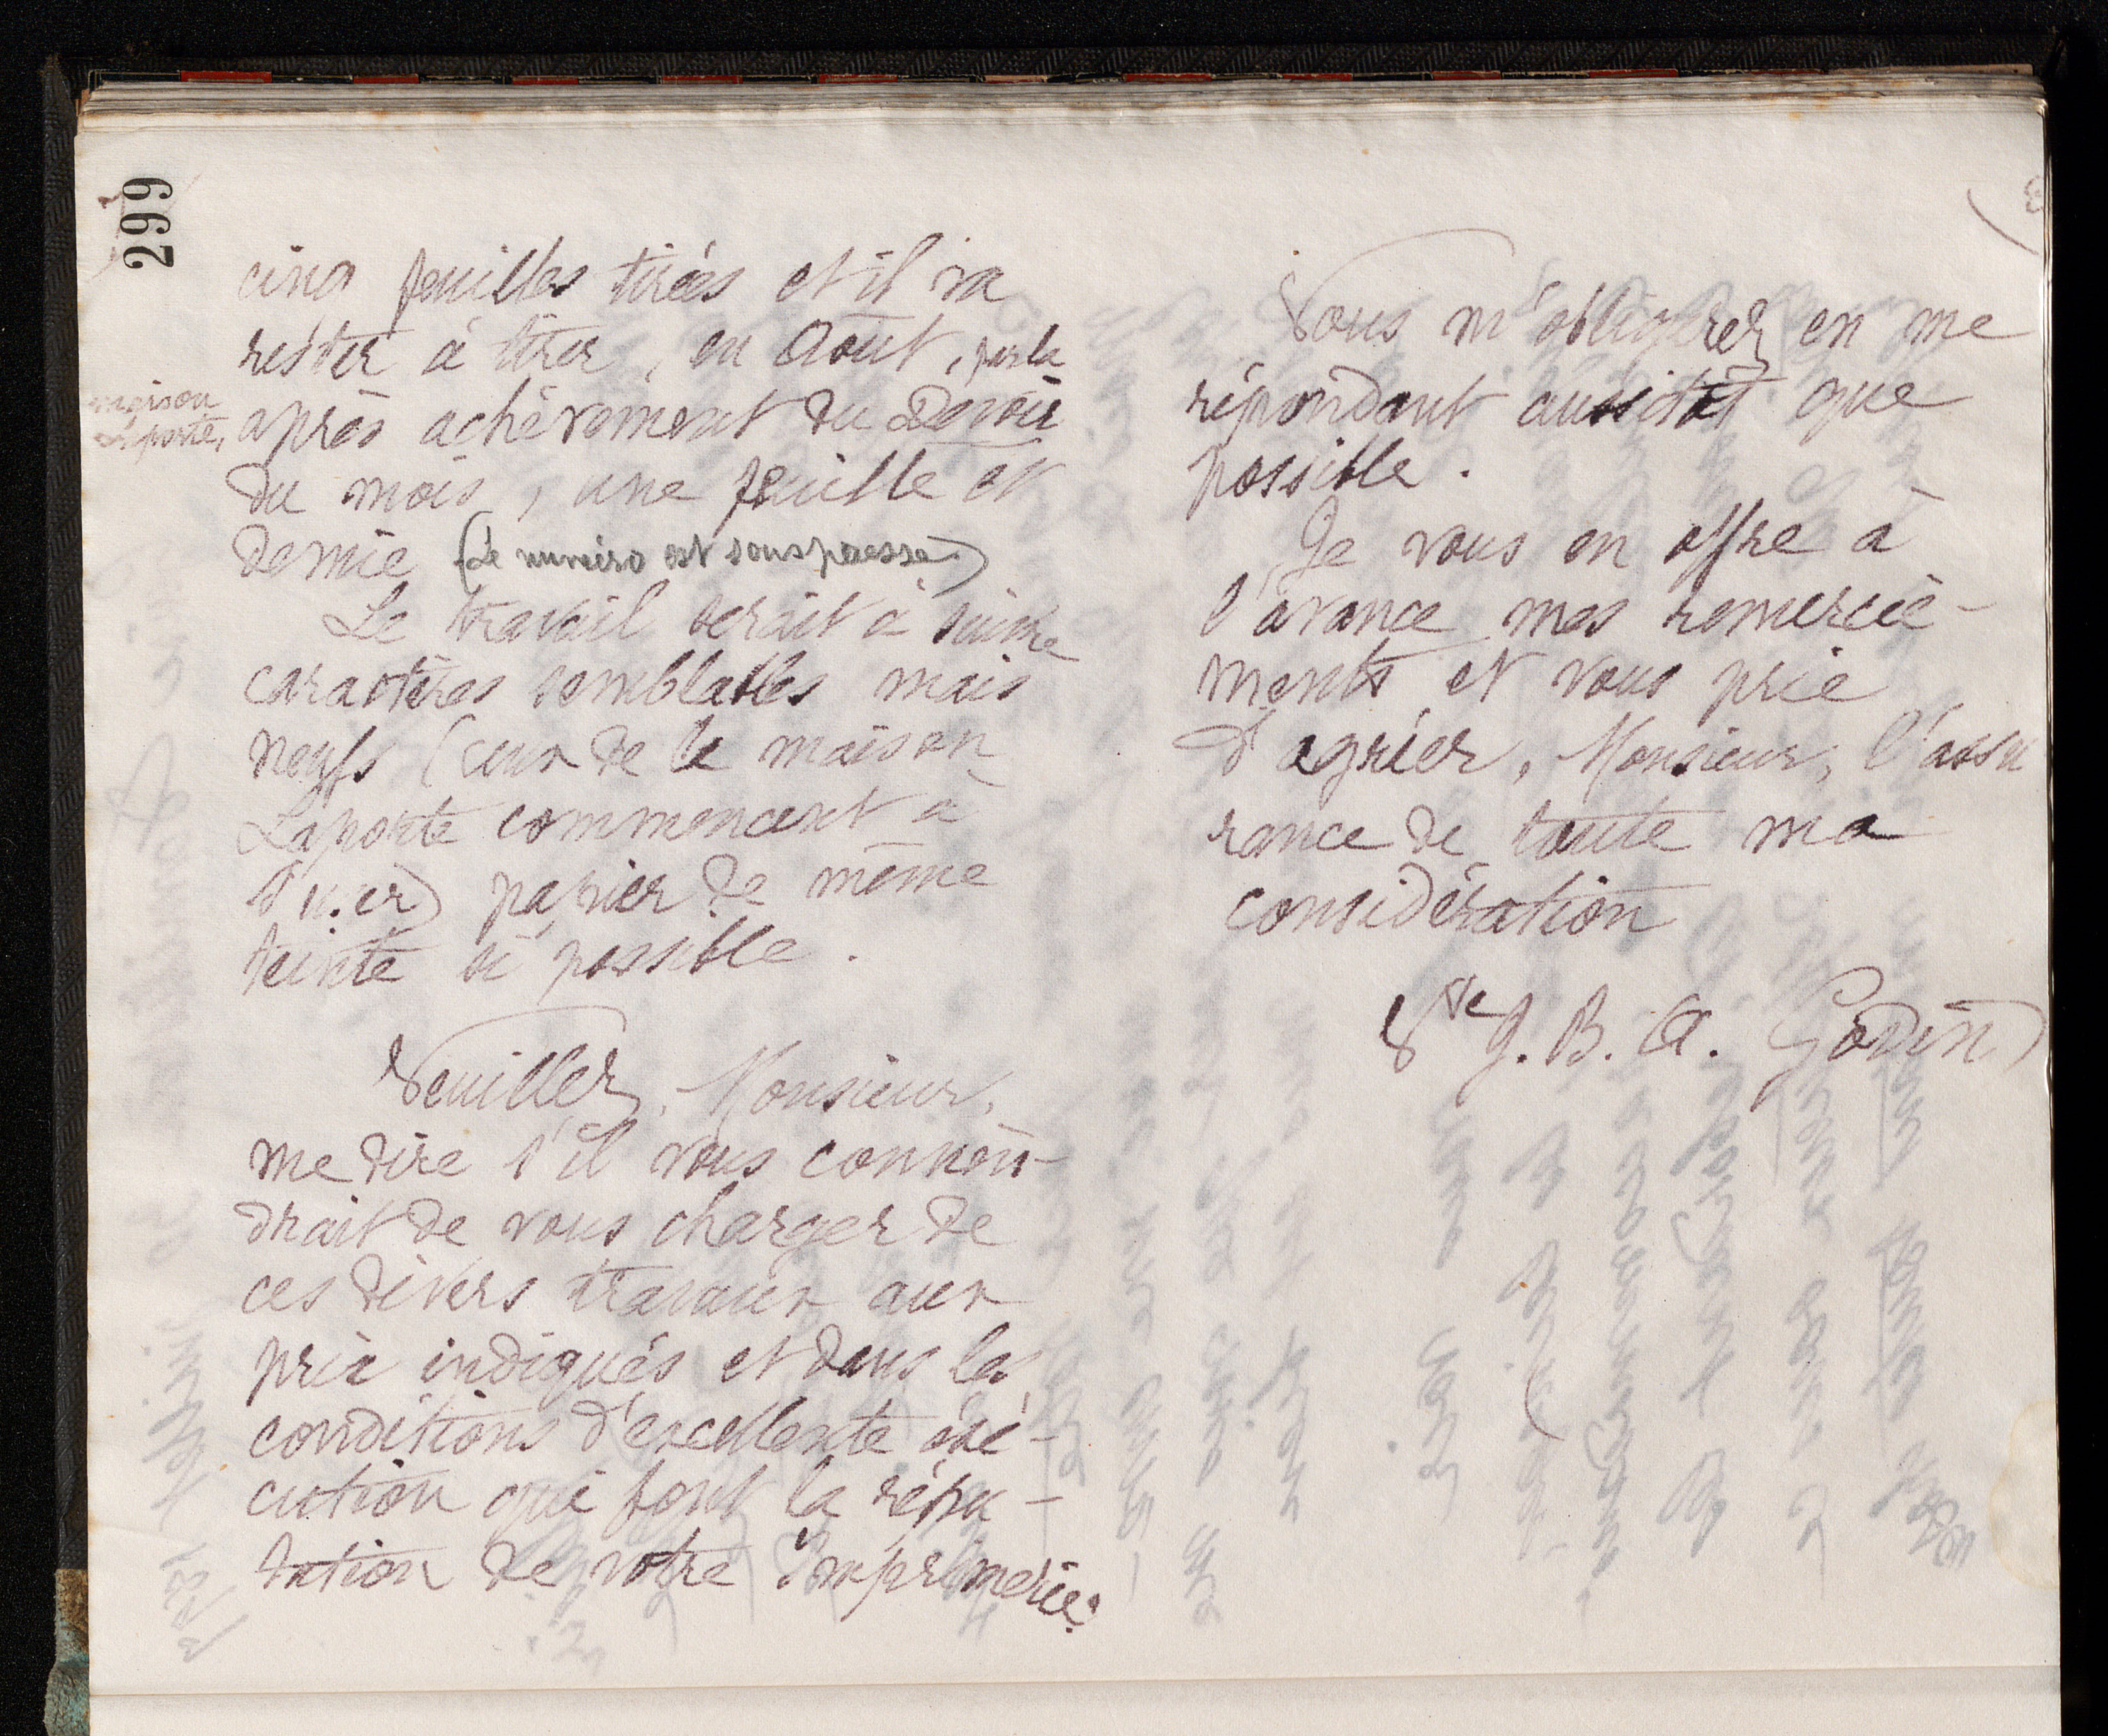 299
cinq feuilles tirées et il va
rester à tirer, en Août, par la
maison
Laporte,
après achèvement du Devoir
du mois, une feuille et
demie (Le numéro est sous presse)
Le travail serait à suivre
caractères semblables mais
neufs (ceux de la maison
Laporte commencent à
s'user) papier de même
teinte si possible.
Veuillez, Monsieur,
me dire s'il vous convien-
drait de vous charger de
ces divers travaux aux
prix indiqués et dans les
conditions d'excellente exé-
cution qui font la répu-
tation de votre imprimerie.
Vous m'obligerez en me
répondant aussitôt que
possible.
Je vous en offre à
l'avance mes remercie-
ments et vous prie
d'agréer, Monsieur, l'assu
rance de toute ma
considération
Vve J. B. A. Godin